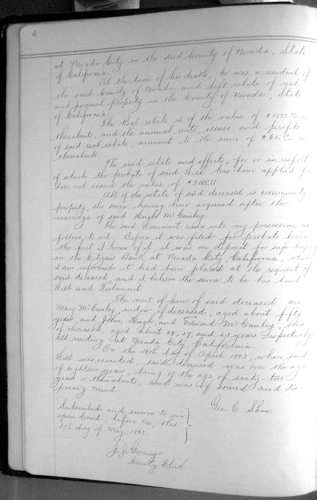 at Nevada City in the said County of Nevada, State
of California.
At the time of his death, he was a resident of
the said County of Nevada and left estate of real
and personal property in the County of Nevada, State
of California.
The Real estate is of the value of $
thereabout, and the annual rents, issues and profits
of said real estate, amount to the sum of $
thereabouts.
The said estate and effects, for or in respect
of which the probate of said Will has been applied for
does not exceed the value of $
All of the estate of said deceased is community
property, the same having been acquired after the
marriage of said Hugh McCauley.
The said document came into my possession as
follows to wit: Before it was filed for probate herein
the first I knew of it it was on deposit for safe keeping
in the Citizens Bank at Nevada City California, where
I am informed it had been placed at the request of
said deceased, and I believe the same to be his last
Will and Testament.
The next of kin of said deceased are
Mary McCauley, widow of deceased, aged about fifty
years and John, Hugh and Edward McCauley, sons
of deceased, aged about 27 and 23 years respectively
all residing at Nevada City California.
On the day of April 1893, when said
Will was executed, said deceased was over the age
of eighteen years, being of the age of sixty two
years or thereabouts, and was of sound and dis-
posing mind.
Subscribed and sworn to in
open Court, before me, this
day of May
Geo. C. Shaw
J. J. Greany
County Clerk